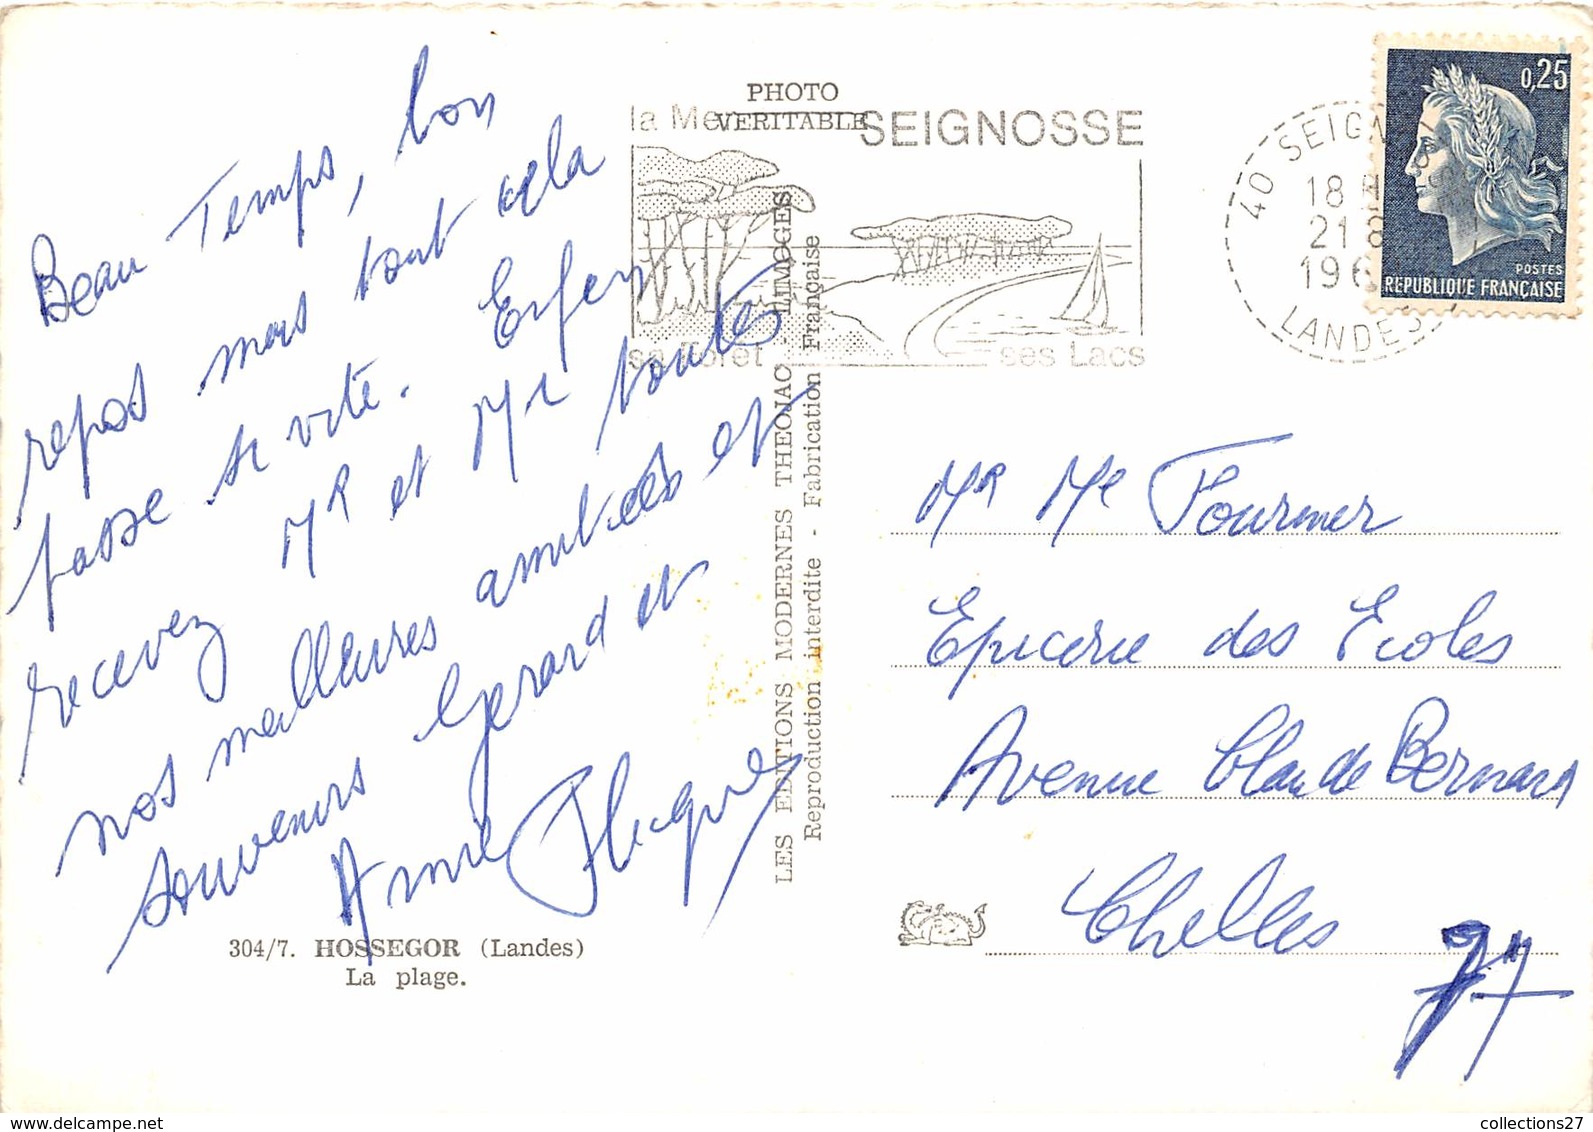 Beau Temps, bon
repos mais tout cela
passe si vite. Enfin
recevez Mr et Me toutes
nos meilleures amitiés et
souvenirs Gerard et
Annie
304/7. HOSSEGOR (Landes)
La plage.
PHOTO
VERITABLE
LES EDITIONS MODERNES THEOJAC - LIMOGES
Reproduction interdite - Fabrication Française
la Mer SEIGNOSSE
sa Forêt ses Lacs
40 SEIGNOSSE
18 H
21 8
196
LANDES
0,25
POSTES
REPUBLIQUE FRANÇAISE
Mr Me Fournier
Epicerie des Ecoles
Avenue Claude Bernard
Chelles
77
collections27